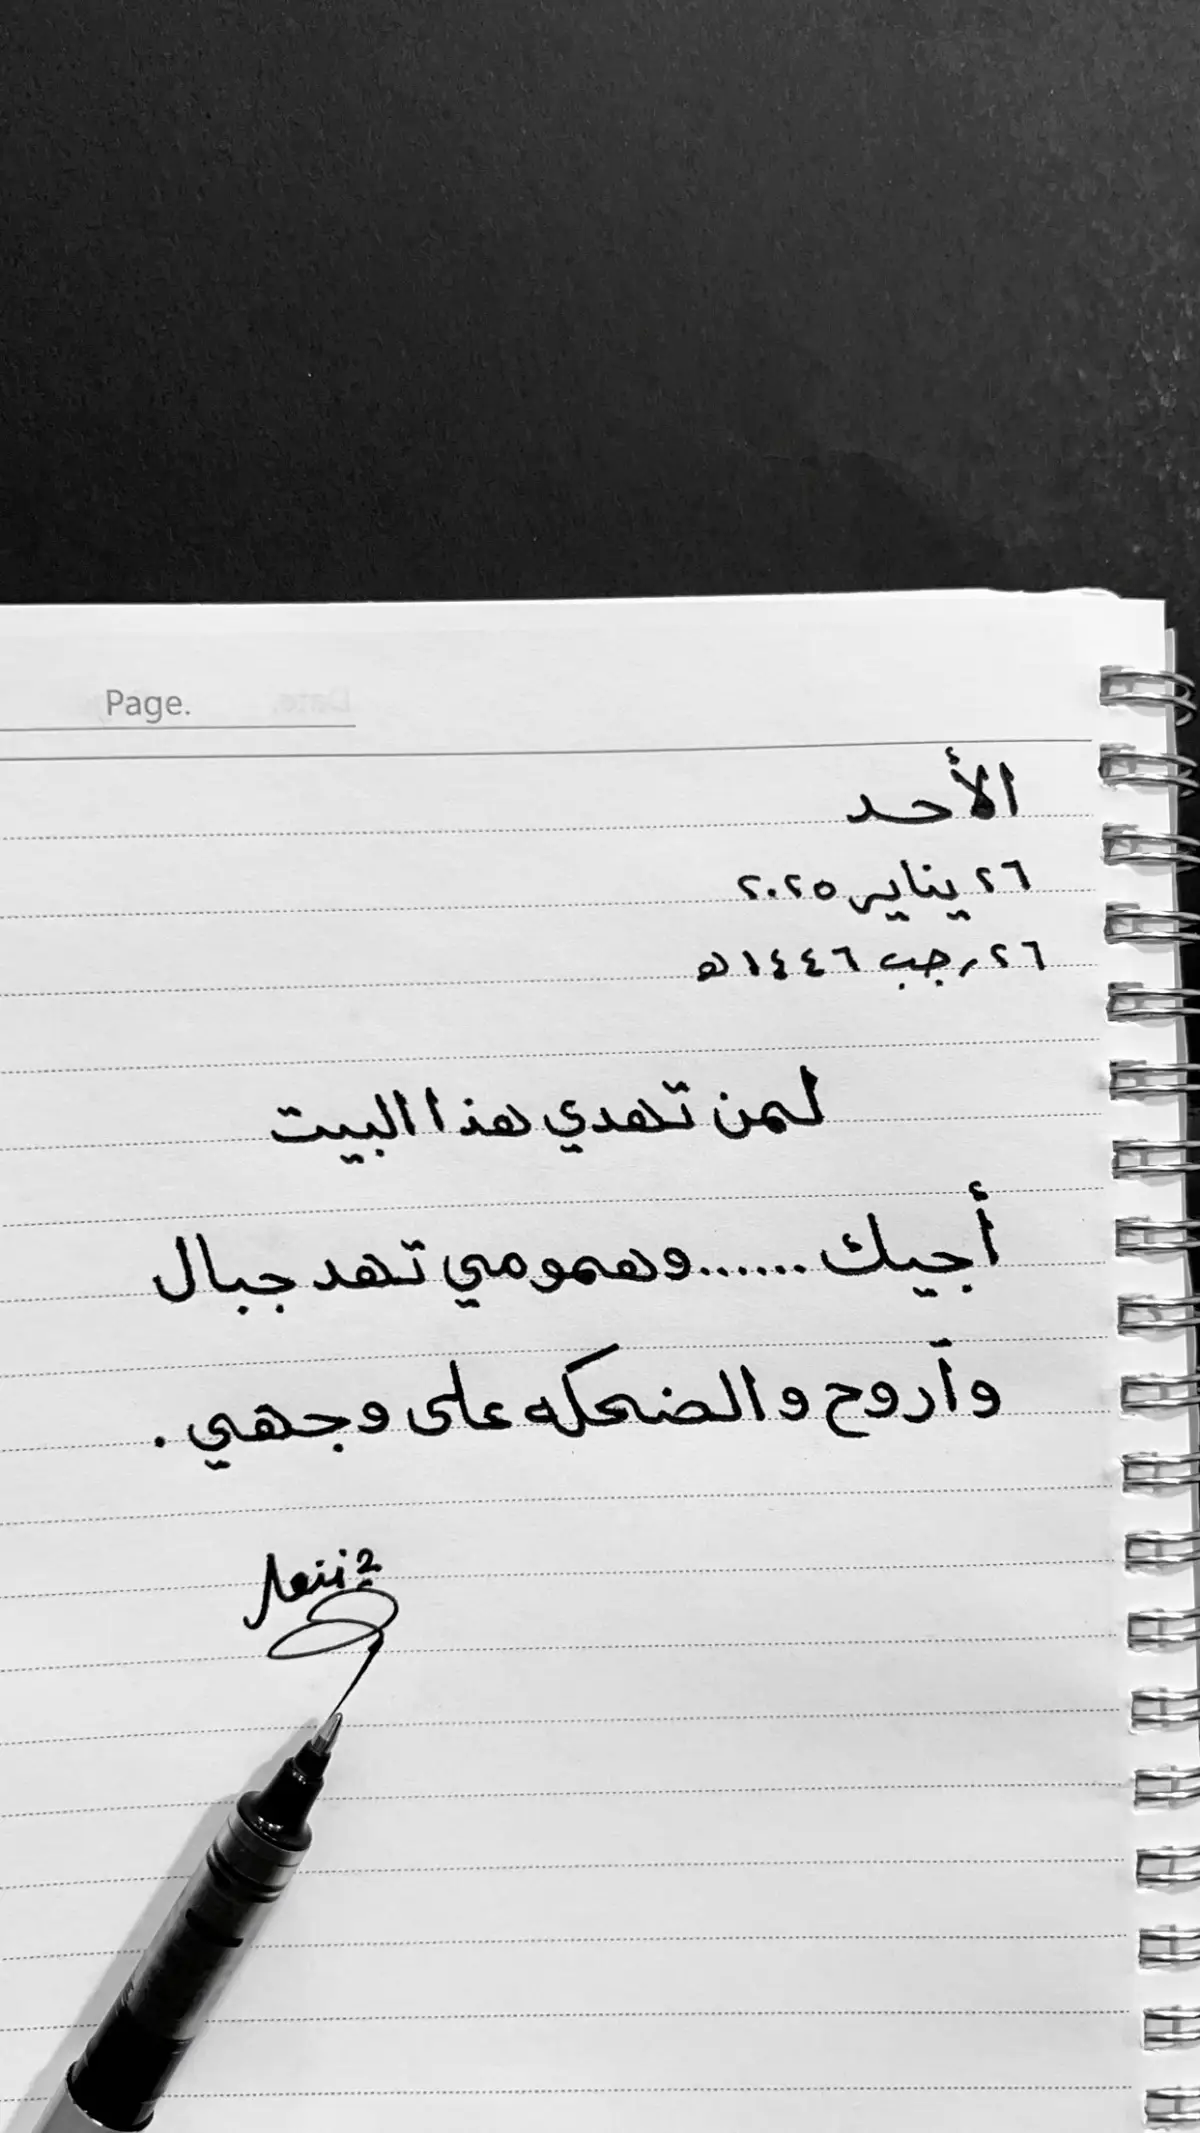 Page.
الأحد
٢٦ يناير ٢٠٢٥
٢٦ رجب ١٤٤٦ه
لمن تهدي هذا البيت
أجيك ......وهمومي تهد جبال
وآروح والضحكه على وجهي .